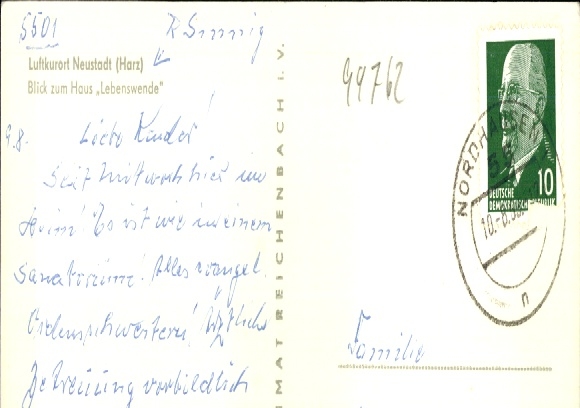 5501
Luftkurort Neustadt (Harz)
Blick zum Haus „Lebenswende"
9.8.
Liebe Kinder!
Seit Mittwoch hier im
Heim! Es ist wie in einem
Sanatorium! Alles evangel.
Ordensschwestern!
Betreuung vorbildlich
MAT REICHENBACH I. V.
99762
NORDHAUSEN
55
10.-8.
n
DEUTSCHE
DEMOKRATISCHE REPUBLIK
10
Familie